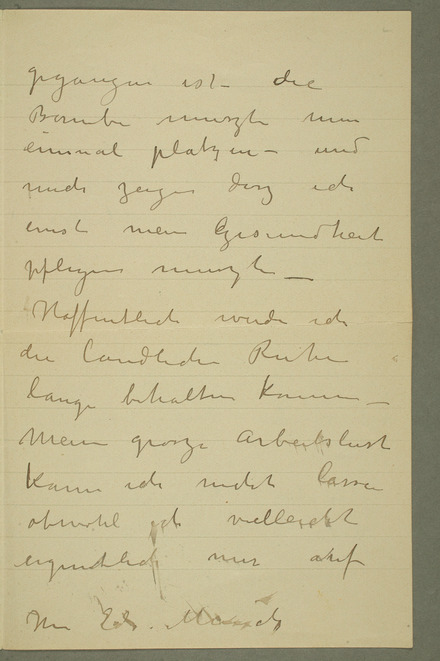 gegangen ist – die
Bombe muszte nun
einmal platzen – und
mich zeigen dasz ich
ernst mein Gesundheit
pflegen muszte –
Hoffentlich werde ich
die landliche Ruhe
lange behalten können –
Meine grosze Arbeitslust
kann ich nicht lassen
obwohl ich vielleicht
eigentlich nur auf
Ihr Edv. Munch